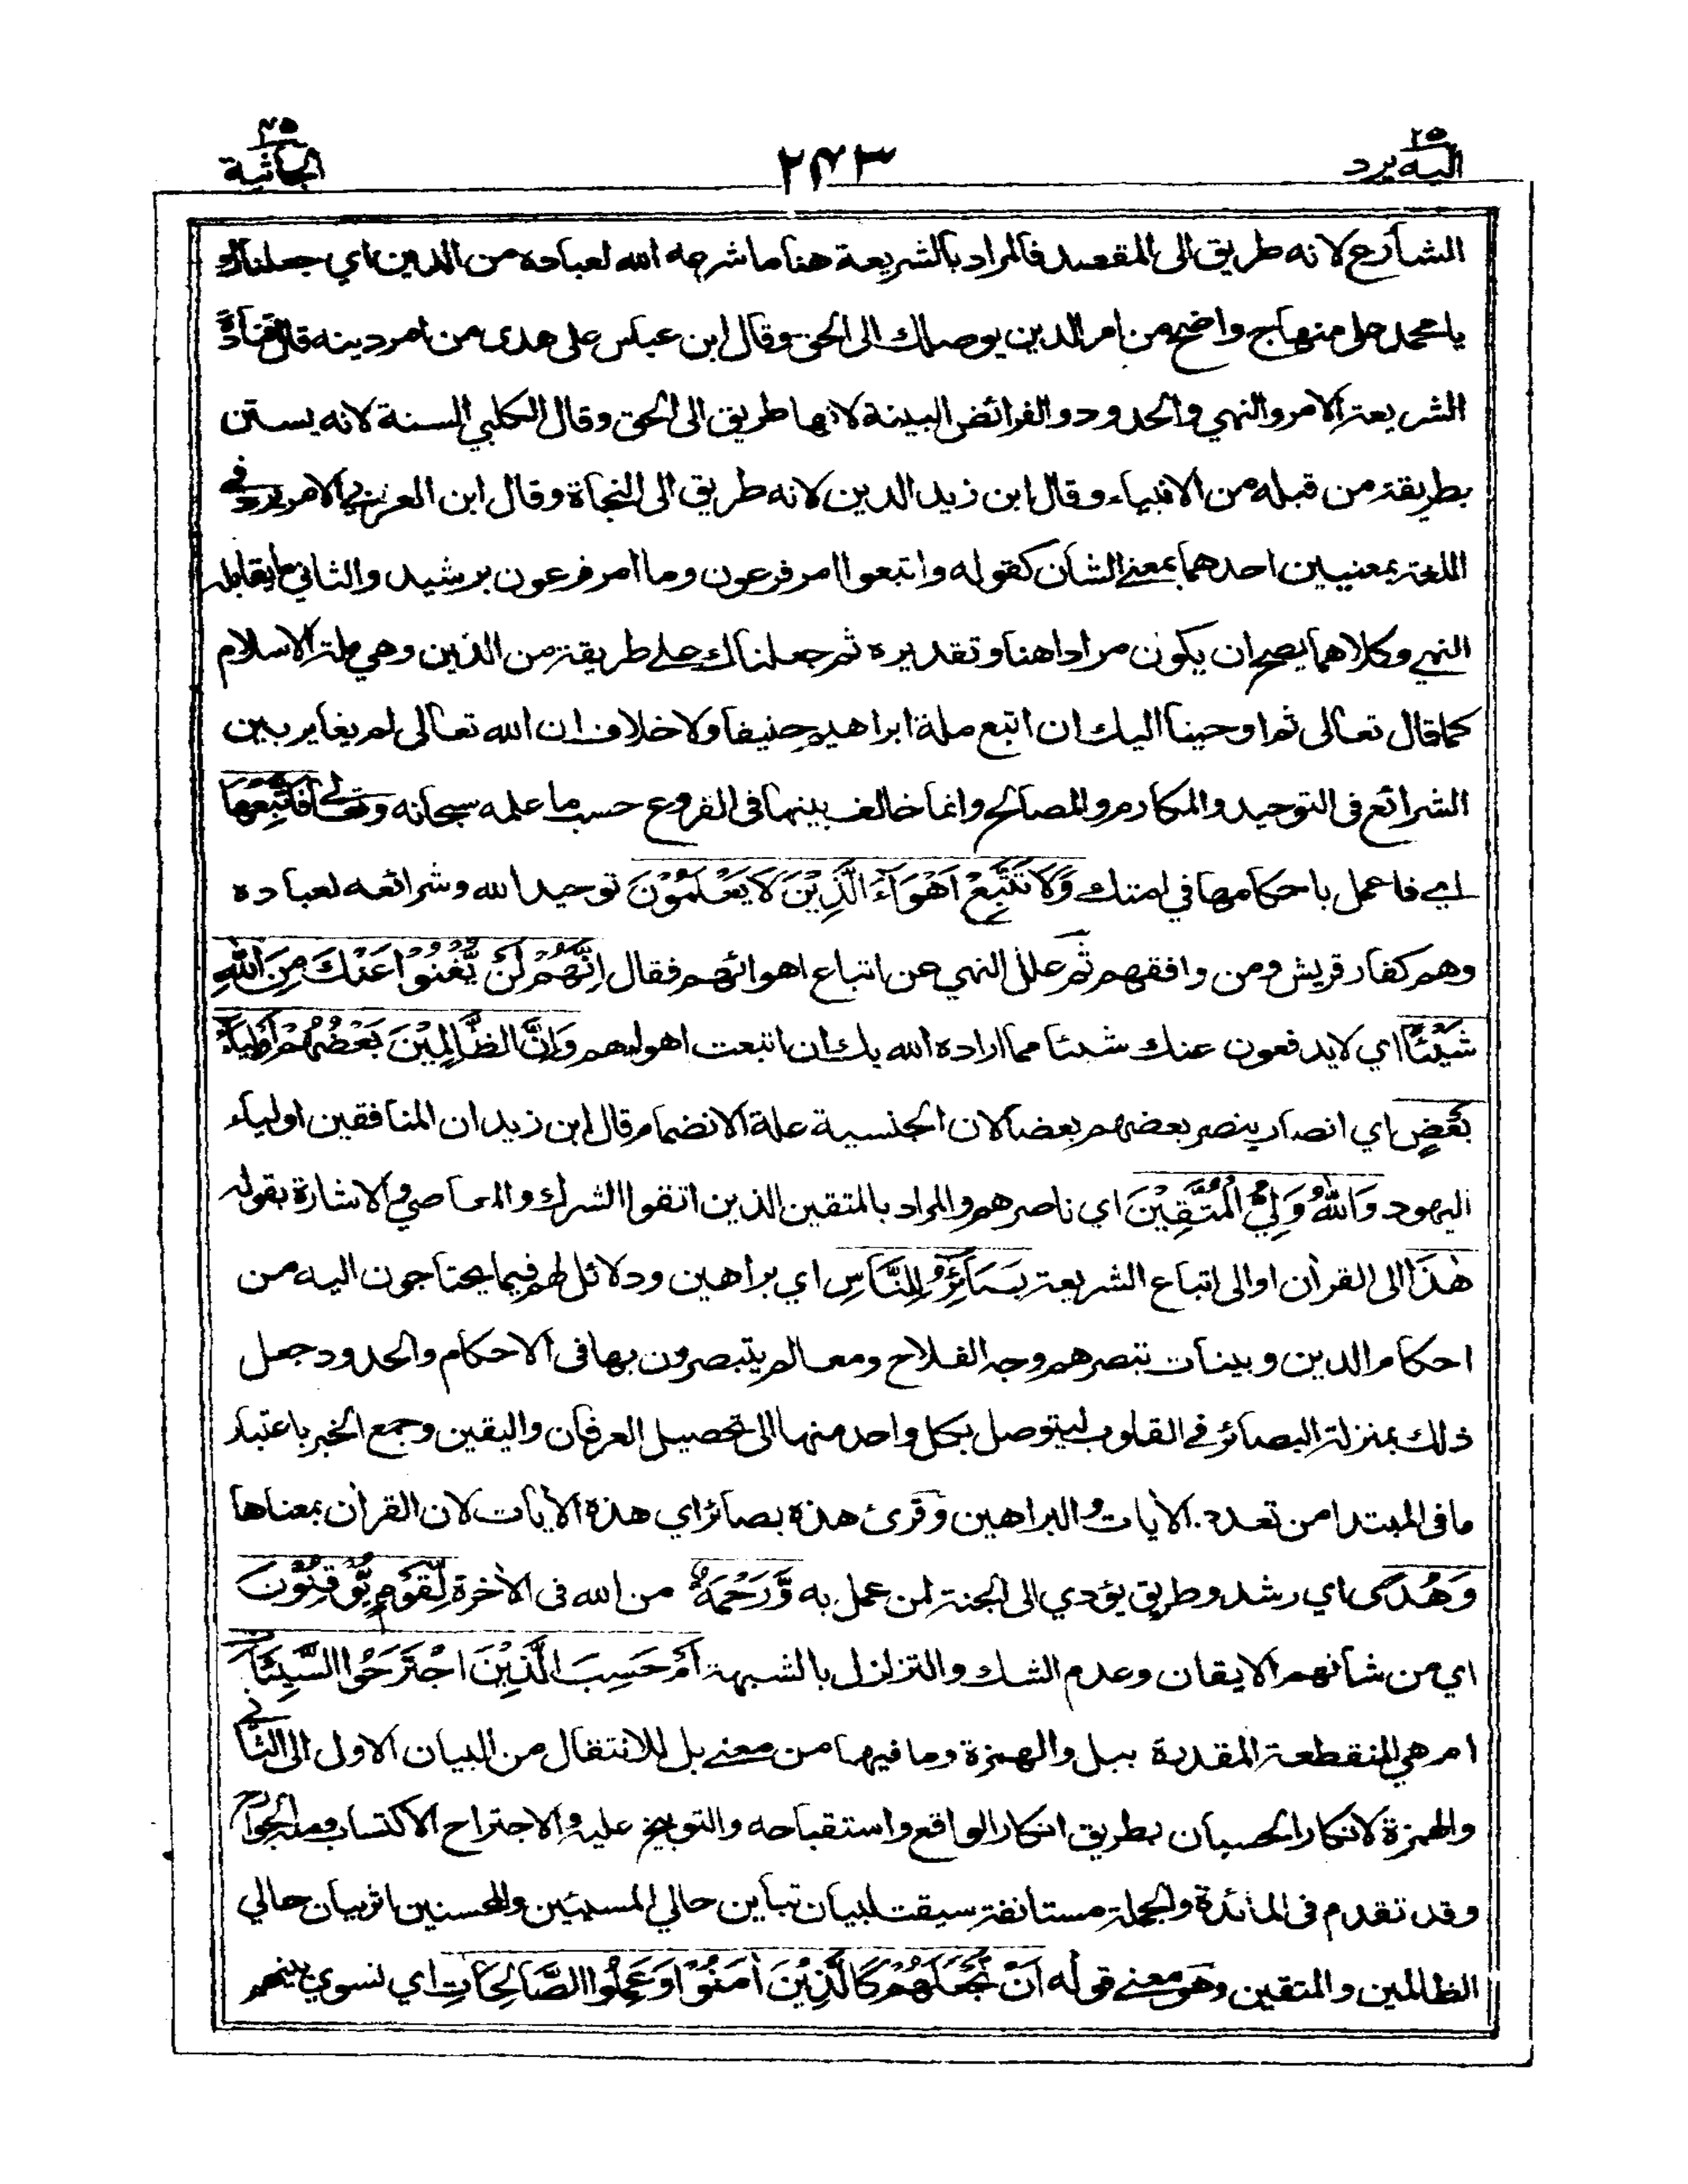 ٢٥
اليه يرد
٢٤٣
٤٥
الجاثية
الشارع لانه طريق الى المقصد فالمراد بالشريعة هنا ما شرعه الله لعباده من الدين اي جعلناك
يا محمد على منهاج واضح من امر الدين يوصلك الى الحق وقال ابن عباس على هدى من امر دينه قال قتادة
الشريعة الامر والنهي والحدود والفرائض البينة لانها طريق الى الحق وقال الكلبي السنة لانه يستن
بطريقة من قبله من الانبياء وقال ابن زيد الدين لانه طريق الى النجاة وقال ابن العربي الامر يرد في
اللغة بمعنيين احدهما بمعنى الشأن كقوله واتبعوا امر فرعون وما امر فرعون برشيد والثاني ما يقابله
النهي وكلاهما يصح ان يكون مرادا هنا وتقديره ثم جعلناك على طريقة من الدين وهي ملة الاسلام
كما قال تعالى ثم اوحينا اليك ان اتبع ملة ابراهيم حنيفا ولا خلاف ان الله تعالى لم يغاير بين
الشرائع فى التوحيد والمكارم والمصالح وانما خالف بينها فى الفروع حسب ما علمه سبحانه وتعالى فَاتَّبِعْهَا
اي فاعمل باحكامها في امتك وَلَا تَتَّبِعْ اَهْوَآءَ الَّذِيْنَ لَا يَعْلَمُوْنَ توحيد الله وشرائعه لعباده
وهم كفار قريش ومن وافقهم ثم علل النهي عن اتباع اهوائهم فقال اِنَّهُمْ لَنْ يُّغْنُوْا عَنْكَ مِنَ اللّٰهِ
شَيْئًا اي لا يدفعون عنك شيئا مما اراده الله بك ان اتبعت اهوائهم وَاِنَّ الظَّالِمِيْنَ بَعْضُهُمْ اَوْلِيَآءُ
بَعْضٍ اي انصار ينصر بعضهم بعضا لان الجنسية علة الانضمام قال ابن زيد ان المنافقين اولياء
اليهود وَاللّٰهُ وَلِيُّ الْمُتَّقِيْنَ اي ناصرهم والمراد بالمتقين الذين اتقوا الشرك والمعاصي والاشارة بقوله
هٰذَا الى القرآن او الى اتباع الشريعة بَصَآئِرُ لِلنَّاسِ اي براهين ودلائل لهم فيما يحتاجون اليه من
احكام الدين وبينات تبصرهم وجه الفلاح ومعالم يتبصرون بها فى الاحكام والحدود جعل
ذلك بمنزلة البصائر في القلوب ليتوصل بكل واحد منها الى تحصيل العرفان واليقين وجمع الخبر باعتبار
ما فى المبتدا من تعدد الأيات والبراهين وقرئ هذه بصائر اي هذه الأيات لان القرآن بمعناها
وَهُدًى اي رشد وطريق يؤدي الى الجنة لمن عمل به وَّرَحْمَةٌ من الله فى الأخرة لِّقَوْمٍ يُّوْقِنُوْنَ
اي من شأنهم الايقان وعدم الشك والتزلزل بالشبهة اَمْ حَسِبَ الَّذِيْنَ اجْتَرَحُوا السَّيِّئَاتِ
ام هي المنقطعة المقدرة ببل والهمزة وما فيها من معنى بل للانتقال من البيان الاول الى الثاني
والهمزة لانكار الحسبان بطريق انكار الواقع واستقباحه والتوبيخ عليه والاجتراح الاكتساب ومنه الجوارح
وقد تقدم فى المائدة والجملة مستانفة سيقت لبيان تباين حالي المسيئين والمحسنين اثر بيان حالي
الظالمين والمتقين وهو معنى قوله اَنْ نَّجْعَلَهُمْ كَالَّذِيْنَ اٰمَنُوْا وَعَمِلُوا الصَّالِحَاتِ اي نسوي بينهم